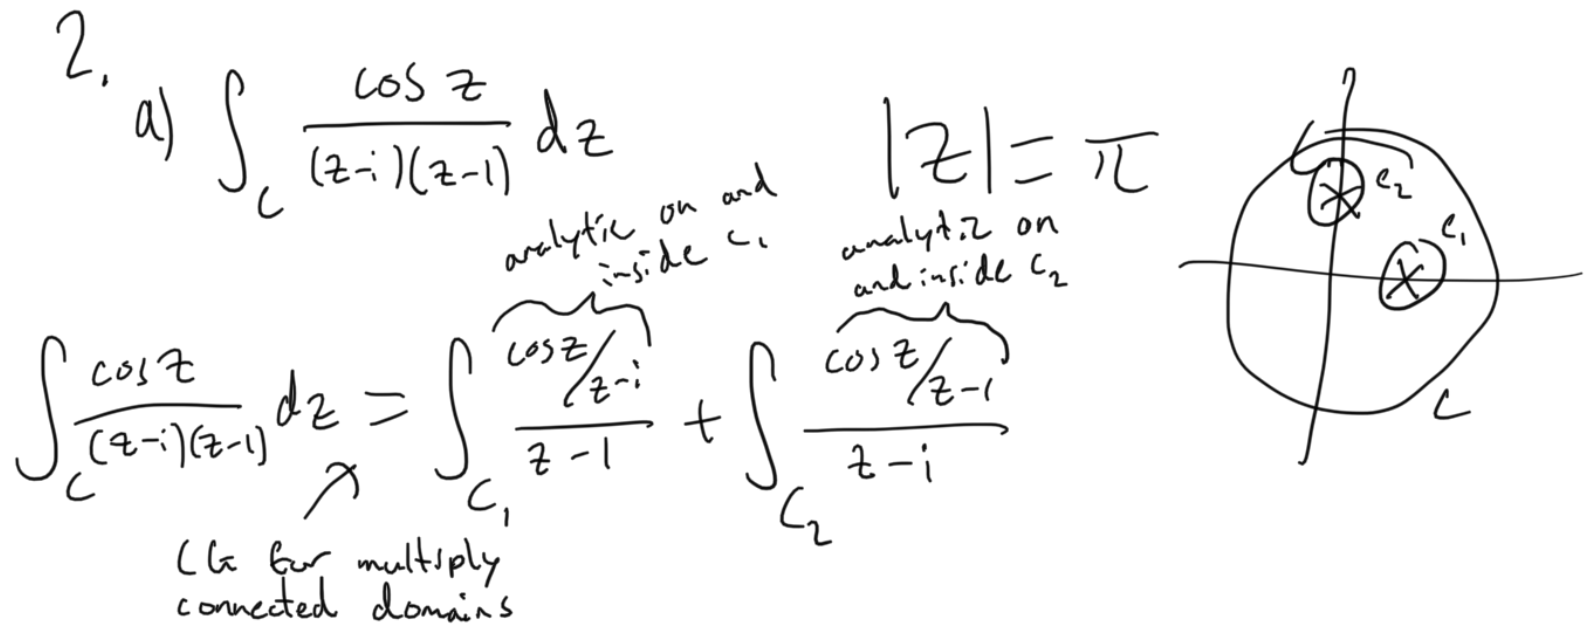 2.
a) ∫_C cos z / (z-i)(z-1) dz
|z| = π
analytic on and
inside C₁
analytic on
and inside C₂
∫_C cos z / (z-i)(z-1) dz = ∫_C₁ (cos z / z-i) / (z-1) + ∫_C₂ (cos z / z-1) / (z-i)
CG for multiply
connected domains
C₂
C₁
C